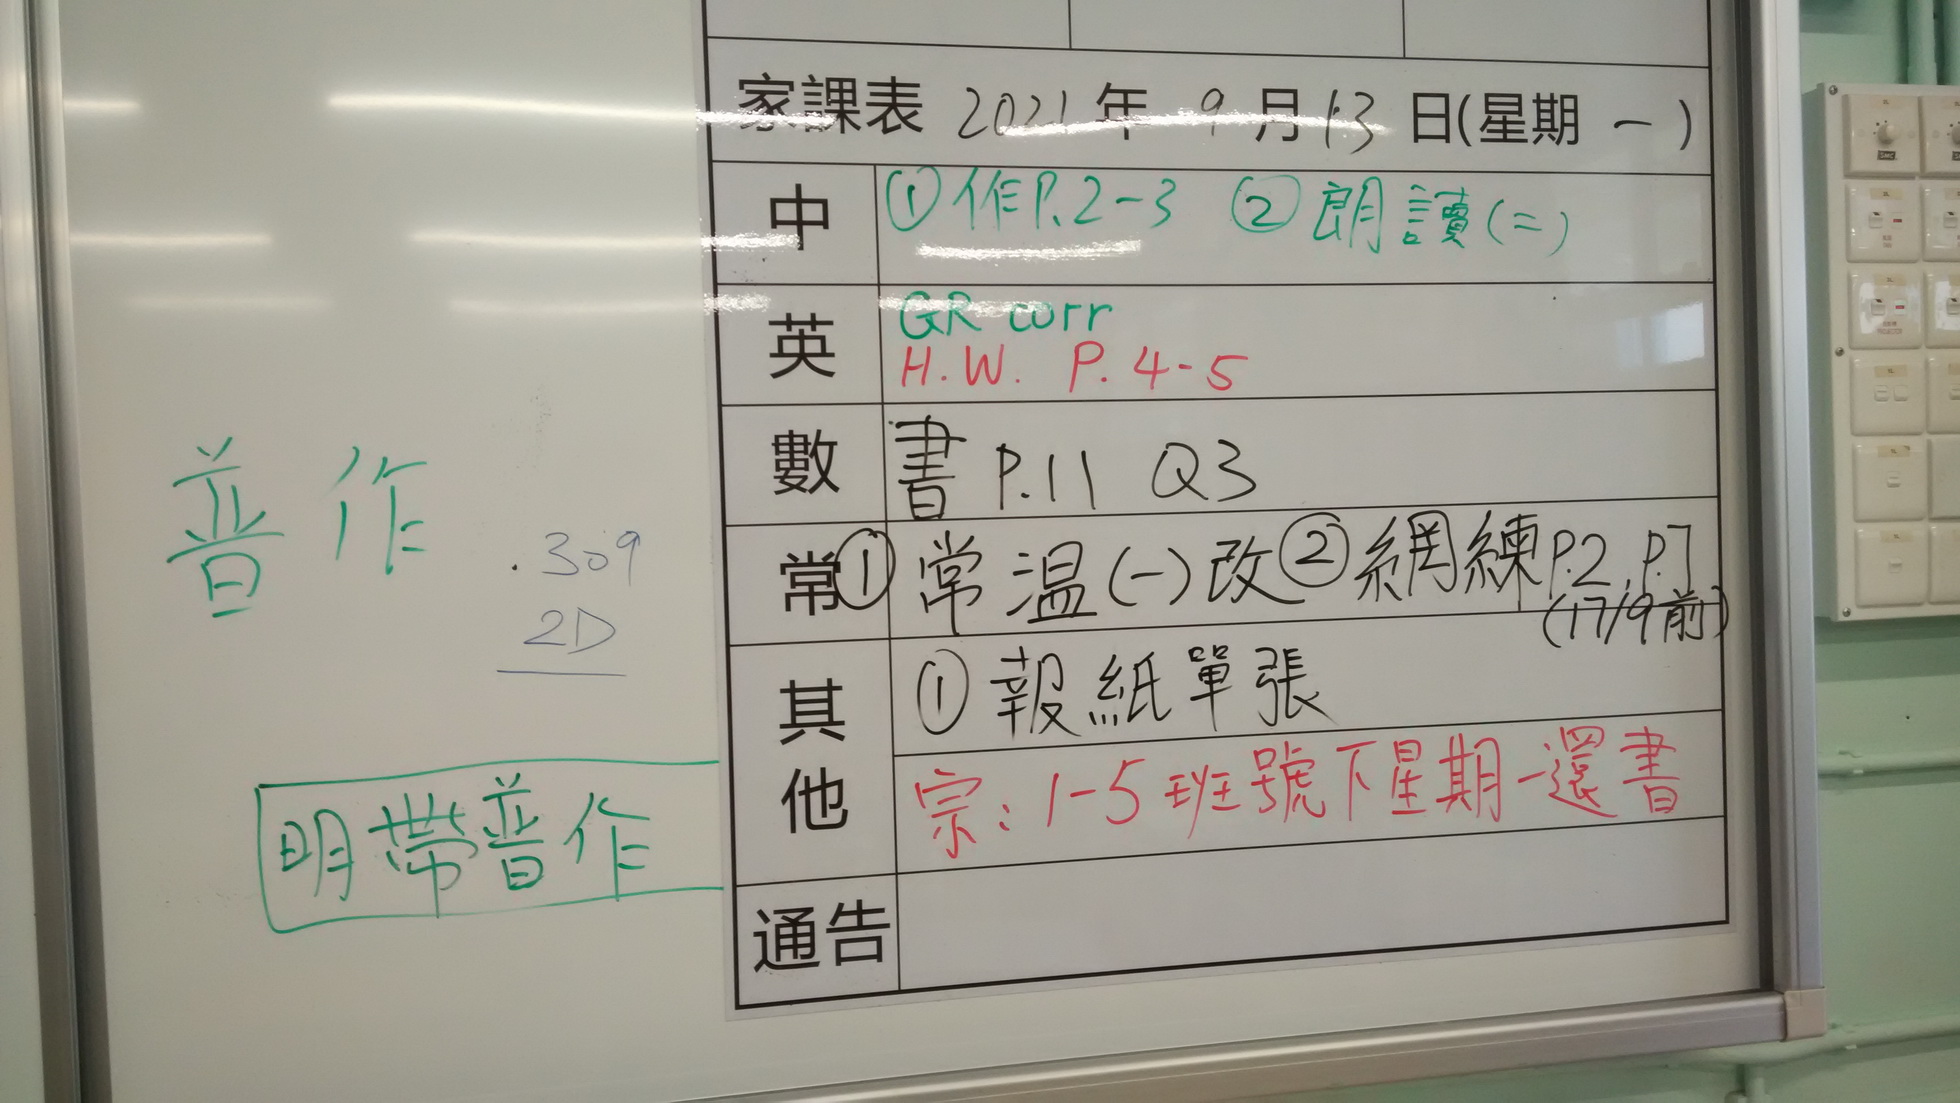 家課表 2021 年 9 月 13 日(星期 一)
中 ①作P.2-3 ②朗讀(二)
英 GR corr
H.W. P.4-5
數 書 P.11 Q3
常 ①常溫(一)改 ②網練P.2, P.7
(17/9前)
其他 ①報紙單張
宗:1-5班號下星期一還書
通告
普作
.309
2D
明帶普作